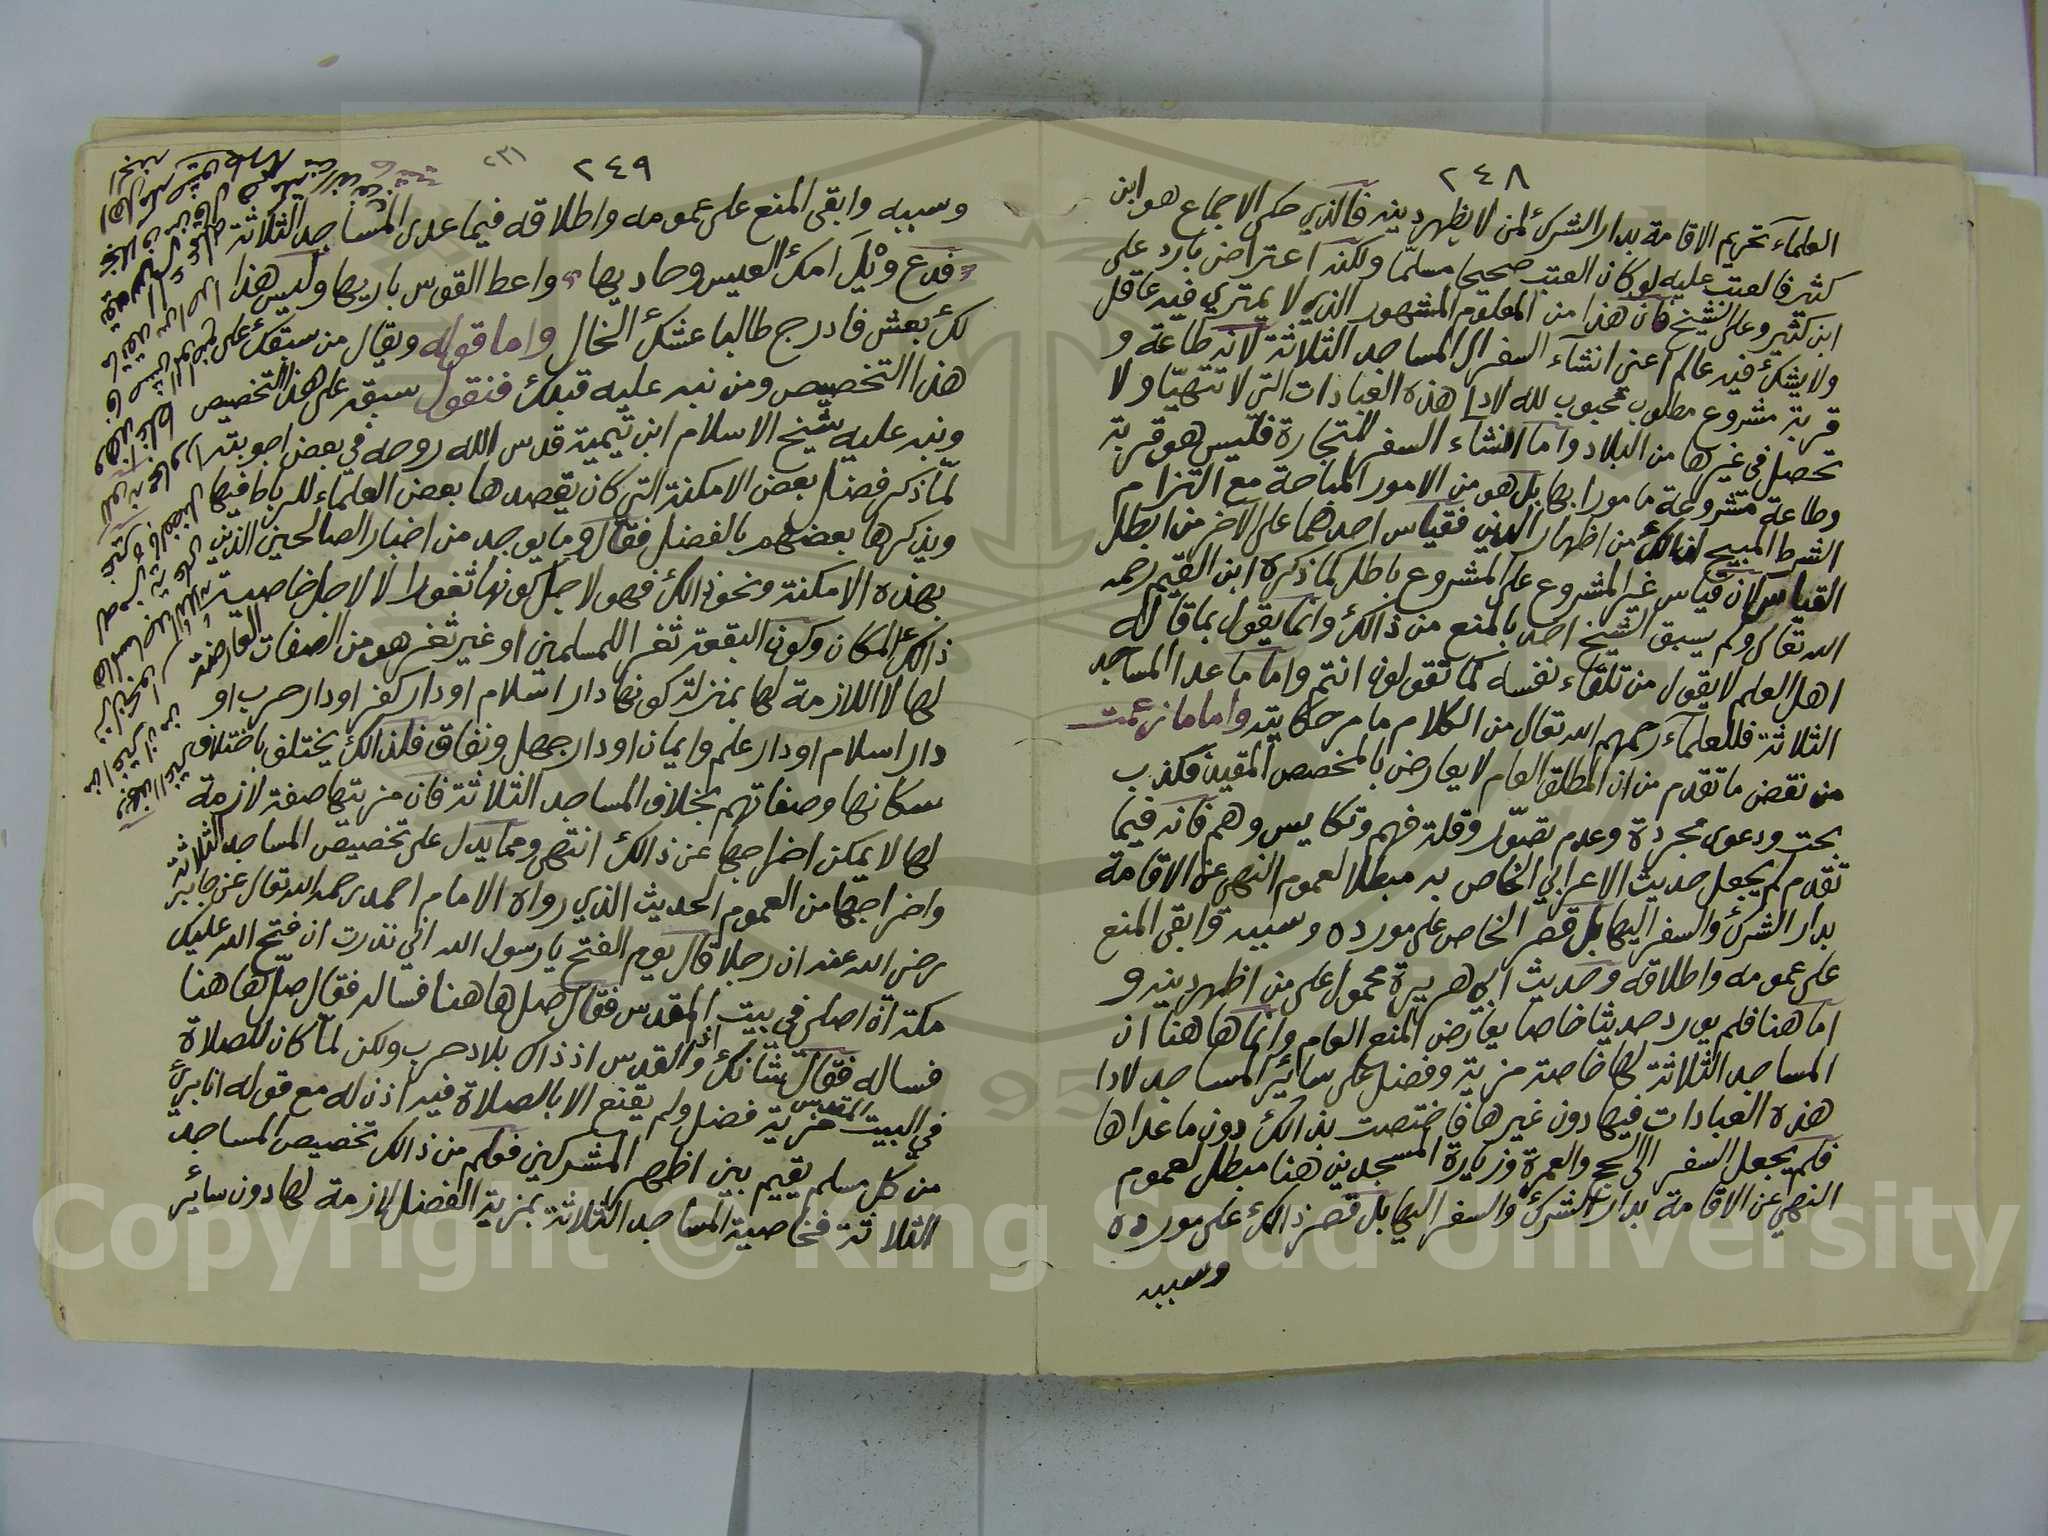 ٢٤٨
العلمآء تحريم الاقامة بدار الشرك لمن لا يظهر دينه فالذي حكى الاجماع هو ابن
كثير فالعتب عليه لو كان العتب صحيحا مسلّما ولكنه اعتراض بارد على
ابن كثير وعلى الشيخ فان هذا من المعلوم المشهور الذي لا يمتري فيه عاقل
ولا يشك فيه عالم اعني انشآء السفر الى المساجد الثلاثة لانه طاعة و
قربة مشروع مطلوب محبوب لله لادا هذه العبادات التي لا تتهيّا ولا
تحصل في غيرها من البلاد واما انشاء السفر للتجارة فليس هو قربة
وطاعة مشروعة مامورا بها بل هو من الامور المباحة مع التزام
الشرط المبيح لذلك من اظهار الدين فقياس احدهما على الاخر من ابطل
القياس لان قياس غير المشروع على المشروع باطل كما ذكره ابن القيم رحمه
الله تعالى ولم يسبق الشيخ احد بالمنع من ذالك وانما يقول بما قاله
اهل العلم لا يقول من تلقاء نفسه كما تقولون انتم واما ما عدا المساجد
الثلاثة فللعلمآء رحمهم الله تعالى من الكلام ما مر حكايته واما ما زعمت
من نقض ما تقدم من ان المطلق العام لا يعارض بالمخصص المقيد فكذب
بحت ودعوى مجردة وعدم تصوّر وقلة فهم وتكاييس وهم فانه فيما
تقدم لم يجعل حديث الاعرابي الخاص به مبطلا لعموم النهي عن الاقامة
بدار الشرك والسفر اليها بل قصر الخاص على مورده وسببه وابقى المنع
على عمومه واطلاقه وحديث ابي هريرة محمول على من اظهر دينه و
اما هنا فلم يورد حديثا خاصا يعارض المنع العام وانما هاهنا ان
المساجد الثلاثة لها خاصة مزية وفضل على سائر المساجد لادا
هذه العبادات فيها دون غيرها فاختصت بذالك دون ما عداها
فلم يجعل السفر الى الحج والعمرة وزيارة المسجدين هنا مبطل لعموم
النهي عن الاقامة بدار الشرك والسفر اليها بل قصر ذالك على مورده
وسببه
٢٤٩
٢٣١
وسببه وابقى المنع على عمومه واطلاقه فيما عدى المساجد الثلاثة
فدع ويْكَ امك العيس وحاديها واعط القوس باريها وليس هذا
لك بعش فادرج طالبا عشك الخال واما قوله ويقال من سبقك على
هذا التخصيص ومن نبه عليه قبلك فنقول سبقه على هذا التخصيص
ونبه عليه شيخ الاسلام ابن تيمية قدس الله روحه في بعض اجوبته
لمّا ذكر فضل بعض الامكنة التي كان يقصدها بعض العلماء للرباط فيها
ويذكرها بعضهم بالفضل فقال وما يوجد من اخبار الصالحين الذين
بهذه الامكنة ونحو ذالك فهو لاجل كونها ثغورا لا لاجل خاصية
ذالك المكان وكون البقعة ثغرا للمسلمين او غير ثغر هو من الصفات العارضة
لها لا اللازمة لها بمنزلة كونها دار اسلام او دار كفر او دار حرب او
دار اسلام او دار علم وايمان او دار جهل ونفاق فلذالك يختلف باختلاف
سكانها وصفاتهم بخلاف المساجد الثلاثة فان مزيتها صفة لازمة
لها لا يمكن اخراجها عن ذالك انتهى ومما يدل على تخصيص المساجد الثلاثة
واخراجها من العموم الحديث الذي رواه الامام احمد رحمه الله تعالى عن جابر
رضي الله عنه ان رجلا قال يوم الفتح يا رسول الله اني نذرت ان فتح الله عليك
مكة ان اصلي في بيت المقدس فقال صل هاهنا فساله فقال صلّ هاهنا
فساله فقال شانك اذا والقدس اذ ذاك بلاد حرب ولكن لمّا كان للصلاة
في البيت المقدس مزية فضل ولم يقنع الا بالصلاة فيه اذن له مع قوله انا بريٌ
من كل مسلم يقيم بين اظهر المشركين فعلم من ذالك تخصيص المساجد
الثلاثة فخاصية المساجد الثلاثة بمزية الفضل لازمة لها دون سائر
Copyright © King Saud University
1957